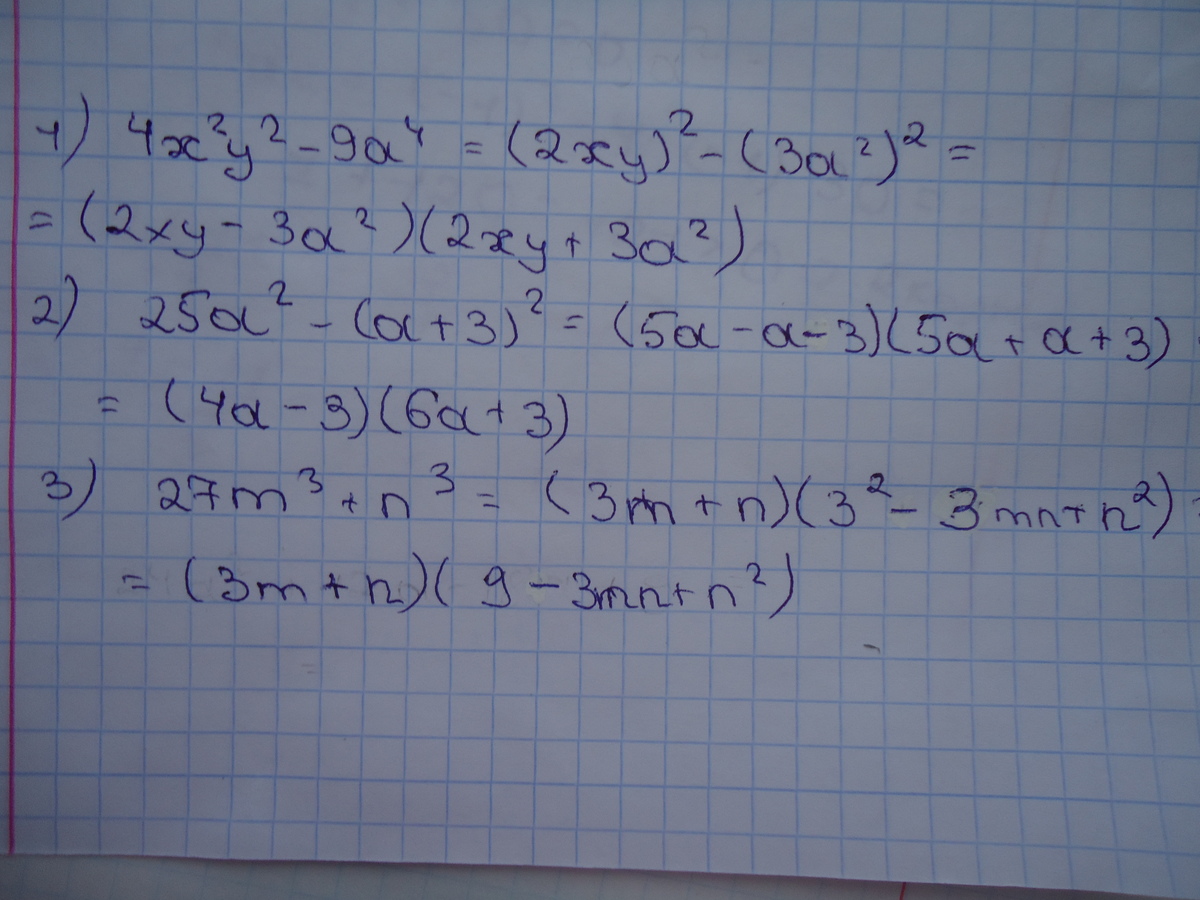 1) 4x²y² - 9a⁴ = (2xy)² - (3a²)² =
= (2xy - 3a²)(2xy + 3a²)
2) 25a² - (a+3)² = (5a - a - 3)(5a + a + 3)
= (4a - 3)(6a + 3)
3) 27m³ + n³ = (3m + n)(3² - 3mn + n²) =
= (3m + n)(9 - 3mn + n²)